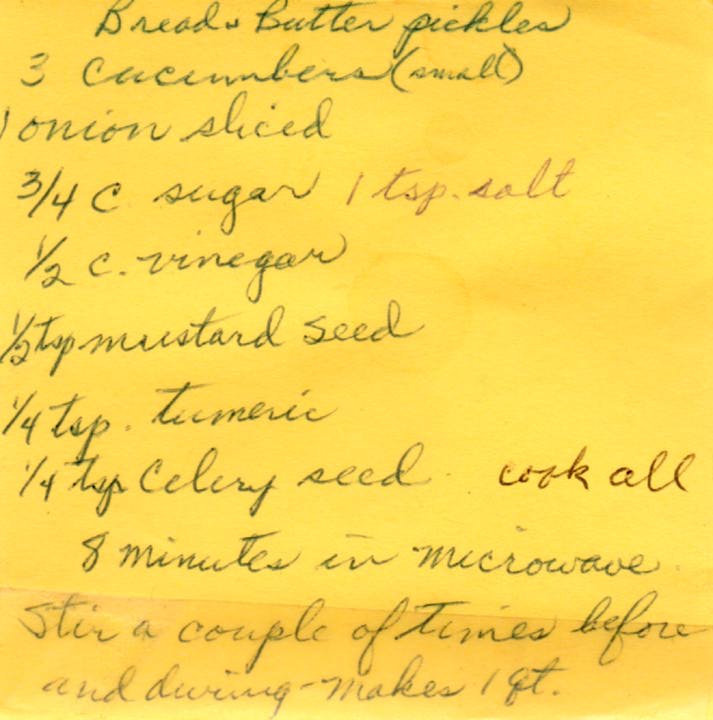 Bread & Butter pickles
3 cucumbers (small)
1 onion sliced
3/4 c sugar 1 tsp. salt
1/2 c. vinegar
1/2 tsp mustard seed
1/4 tsp. tumeric
1/4 tsp Celery seed cook all
8 minutes in microwave
Stir a couple of times before
and during - makes 1 qt.